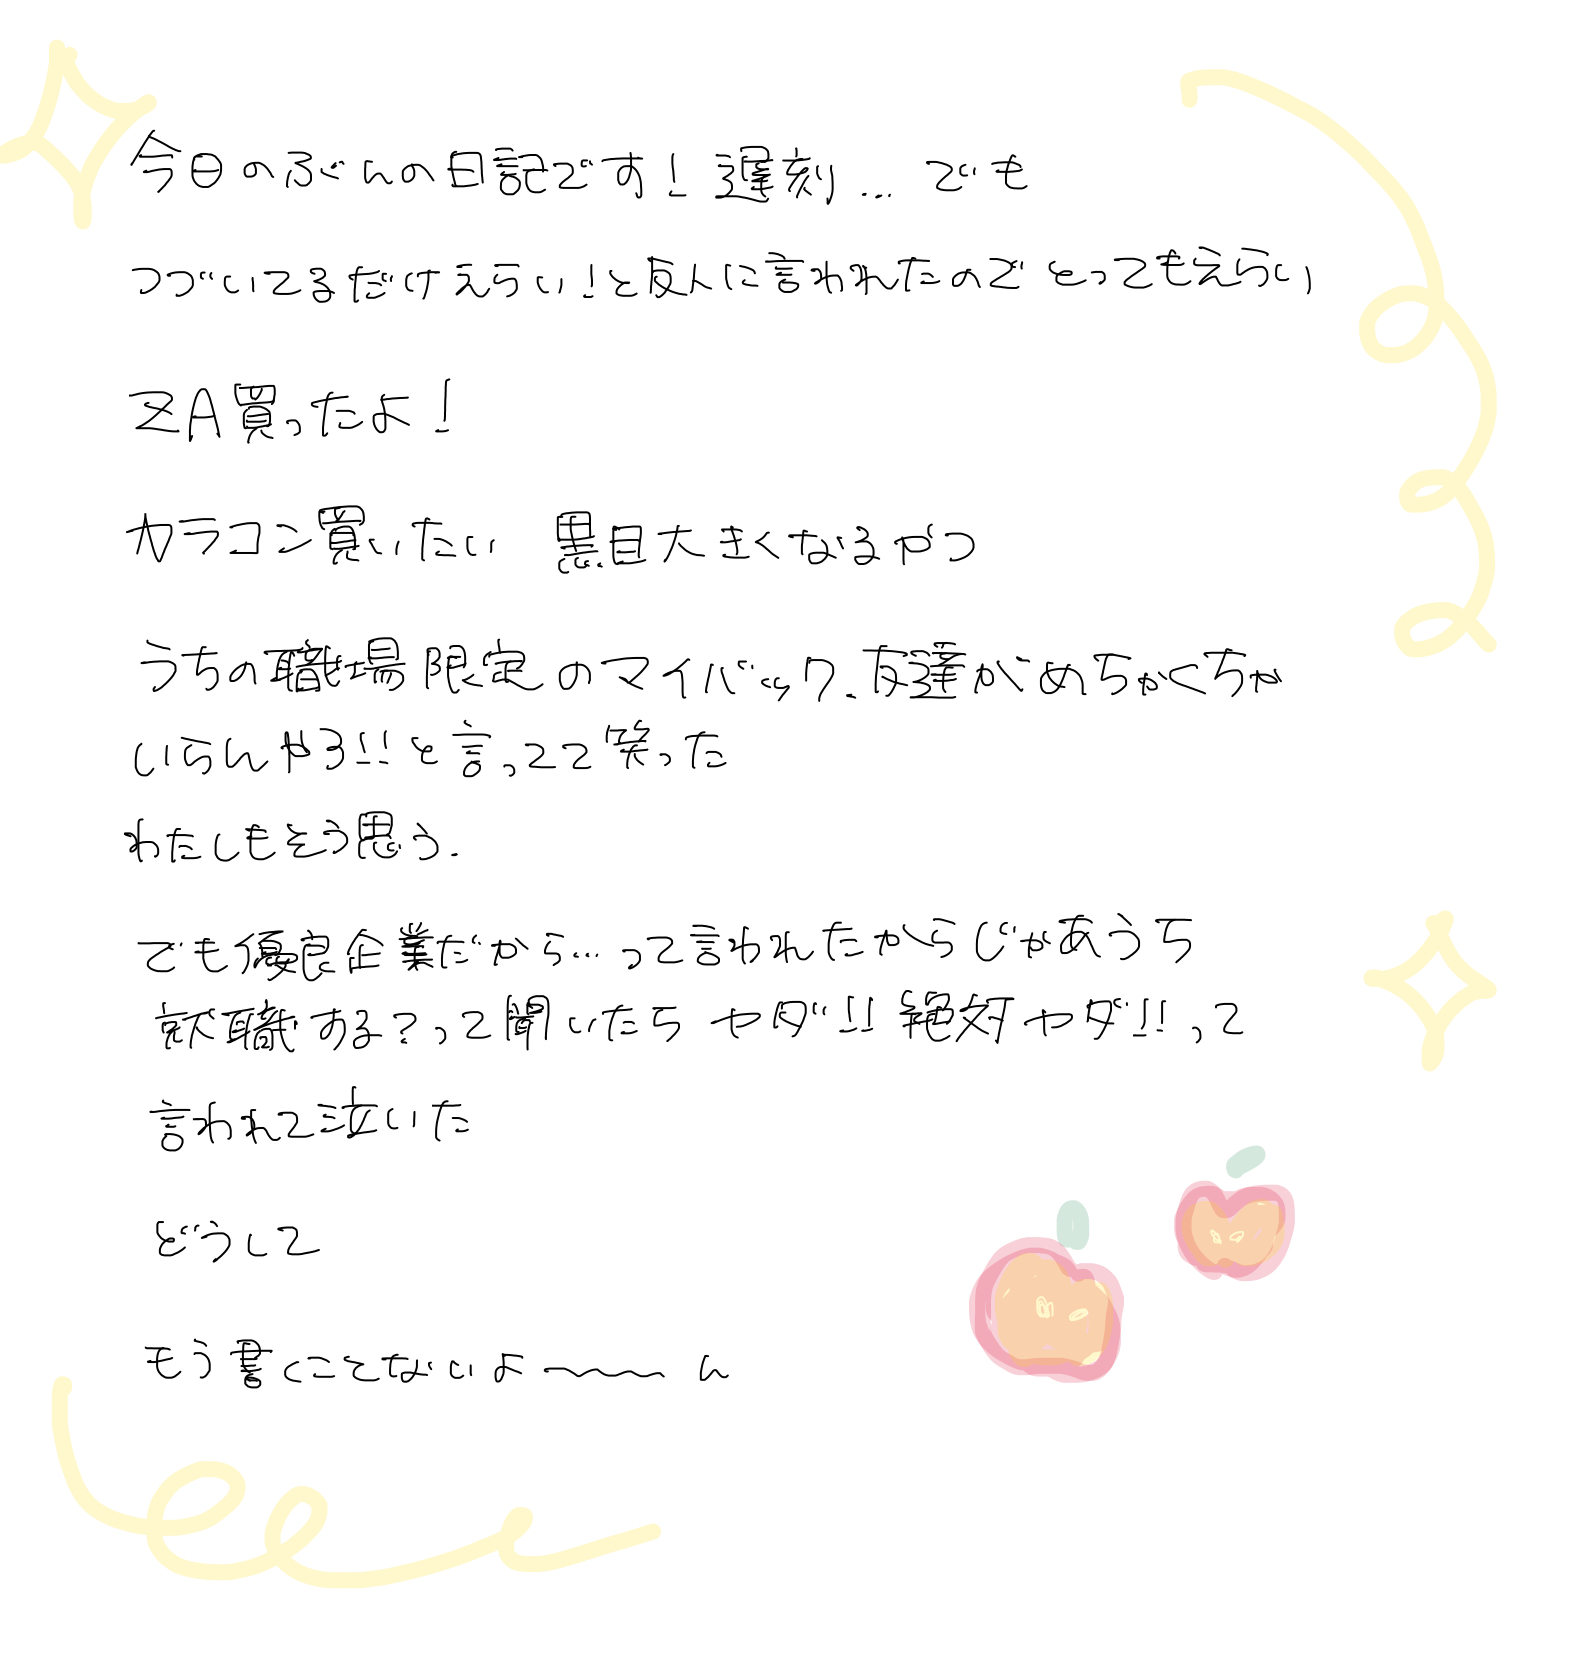 今日のぶんの日記です！遅刻... でも
つづいてるだけえらい！と友人に言われたので とってもえらい
ZA買ったよ！
カラコン買いたい 黒目大きくなるやつ
うちの職場限定のマイバック.友達がめちゃくちゃ
いらんやろ!!と言ってて笑った
わたしもそう思う.
でも優良企業だから...って言われたからじゃあうち
就職する？って聞いたら ヤダ!!絶対ヤダ!!って
言われて泣いた
どうして
もう書くことないよ〜〜〜ん